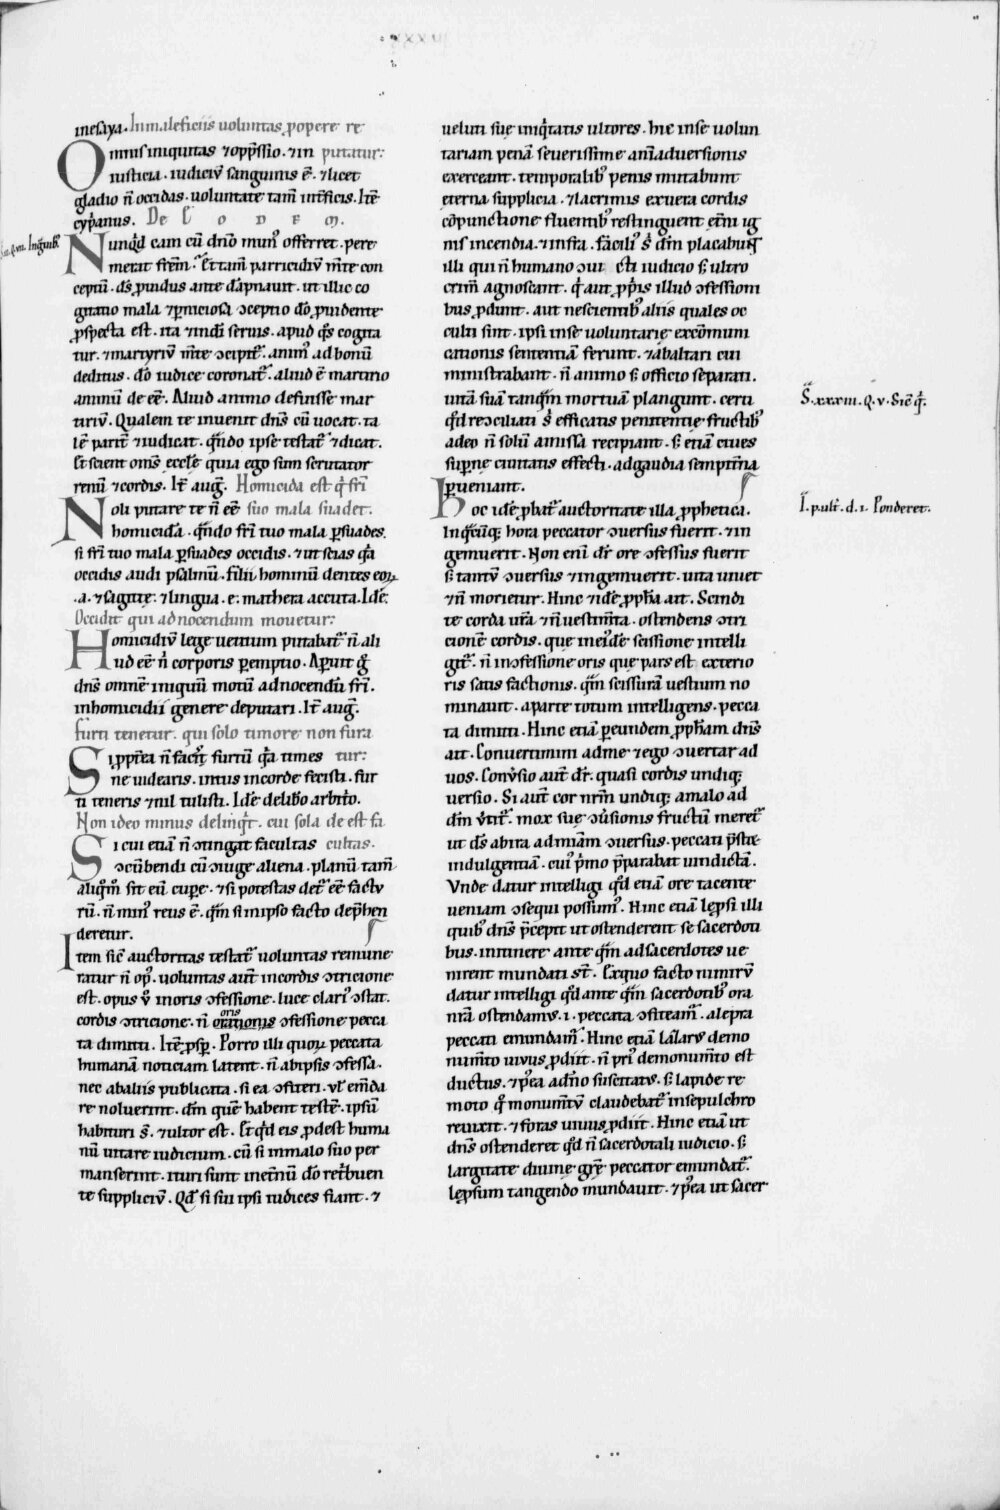 inesaya. In maleficiis voluntas, p opere re
Omnis iniquitas ⁊ opp̄ssio. ⁊ in putatur:
iusticia. iudiciū sanguinis ē. ⁊ licet
gladio n̄ occidas. voluntate tam̄ int̄ficis. Itē
cyp̄anus. De C o D E M.
Nunq̇d cam cū dn̄o mun᷒ offerret. pere
merat fr̄em. Et tam̄ parricidiū m̄te con
ceptū. ds̄ p̱uidus ante dāpnauit. ut illic co
gnatio mala ⁊ p̱niciosa ↄceptio do̅ p̱uidente
p̱specta est. ita ⁊ in di̅ seruis. apud q̄s cogita
tur. ⁊ martyriū m̄te ↄcipit᷑. anim᷒ ad bonū
deditus. do̅ iudice coronat᷑. aliud ē martirio
animū de eē. Aliud animo defuisse mar
tiriū. Qualem te inuenit dn̄s cū uocat. ta
lē parit᷑ ⁊ iudicat. q̄ndo ipse testat᷑ ⁊ dicat.
Et scient om̄s eccłe quia ego sum scrutator
renū ⁊ cordis. It̄ auḡ. Homicida est q̇ fr̄i
Noli putare te n̄ eē suo mala suadet.
homicidā. q̄ndo fr̄i tuo mala p̱suades.
si fr̄i tuo mala p̱suades occidis. ⁊ ut scias q̇a
occidis audi psalmū. filii hominū dentes eoꝝ
.a. ⁊ sagitte. ⁊ lingua. e. machera accuta. Idē.
Occidit qui ad nocendum mouetur:
Homicidiū lege uetitum putabat᷑ n̄ ali
ud eē n̄ corporis p̱emptio. Ap̱uit g̊
dn̄s omnē iniquū motū ad nocendū fr̄i.
in homicidii genere deputari. It̄ auḡ.
furti tenetur. qui solo timore non fura
Si pp̄t̄ea n̄ facis furtū q̇a times tur:
ne uidearis. intus in corde fecisti. fur
ti teneris ⁊ nil tulisti. Idē de lib̄o arbit̄o.
Non ideo minus delinq̇t. cui sola de est fa
Si cui etiā n̄ ↄtingat facultas cultas.
ↄcūbendi cū ↄiuge aliena. planū tam̄
aliq̄m̄ sit eū cup̱e. ⁊ si potestas det᷑ eē factu
rū. n̄ min᷒ reus ē. q̄m̄ si in ipso facto dep̄hen
deretur.
Item sic̄ auctoritas testat᷑ voluntas remune
ratur n̄ op᷒. voluntas aut̄ in cordis ↄtricione
est. opus v̊ in oris ↄfessione. luce clari᷒ ↄstat.
cordis ↄtricione. n̄ orationis oris ↄfessione pecca
ta dimitti. Itē p̱sp̱. Porro illi quoꝝ peccata
humanā noticiam latent. n̄ ab ipsis ↄfessa.
nec ab aliis publicata. si ea ↄfiteri. vł em̄da
re noluerint. dm̄ quē habent testē. ipsū
habituri s̄. ⁊ ultor est. Et q̇d eis p̱dest huma
nū uitare iudicium. cū si in malo suo per
manserint. ituri sunt in et̄nū do̅ ret̄buen
te suppliciū. Qd̄ si sui ipsi iudices fiant. ⁊
ueluti sue iniq̇tatis ultores. hic in se volun
tariam penā seuerissime animaduersionis
exerceant. temporalib᷒ penis mutabunt
eterna supplicia. ⁊ lacrimis ex uera cordis
cōpunctione fluentib᷒ restinguent et̄ni ig
nis incendia. ⁊ infra. Facili᷒ s᷒ dm̄ placabunt
illi qui n̄ humano ↄui cti iudicio s᷑ ultro
crim̄ agnoscunt. q̇ aut p̱p̱iis illud ↄfessioni
bus p̱dunt. aut nescientib᷒ aliis quales oc
culti sint. ipsi in se voluntarie excōmuni
cationis sententiā ferunt. ⁊ ab altari cui
ministrabant. n̄ animo s᷑ officio separati.
uitā suā tanq̄m̄ mortuā plangunt. certi
q̇d reↄciliati s᷒ efficatis penitentie fructib᷒
a deo n̄ solū amissa recipiant. s᷑ etiā ciues
sup̱ne ciuitatis effecti. ad gaudia sempit̄na
p̱ueniant.
Hoc idē p̱bat᷑ auctoritate illa p̱phetica.
In q̇cūq; hora peccator ↄuersus fuerit. ⁊ in
gemuerit. Non eni̅ dr̄ ore ↄfessus fuerit
s᷑ tantū ↄuersus ⁊ ingemuerit. uita uiuet
⁊ n̄ morietur. Hinc ⁊ idē p̱pha ait. Scindi
te corda ur̄a ⁊ n̄ uestim̄ta. ostendens ↄtri
cionē cordis. que in eidē scissione intelli
git᷑. n̄ in ↄfessione oris que pars est exterio
ris satisfactionis. q̄m̄ scissurā uestium no
minauit. a parte totum intelligens. pecca
ta dimitti. Hinc etiā p̱ eundem p̱pham dn̄s
ait. Conuertimini ad me ⁊ ego ↄuertar ad
uos. Conu̅sio aut̄ dr̄. quasi cordis undiq;
uersio. Si aut̄ cor nr̄m undiq; a malo ad
dm̄ v̄tit᷑. mox sue ↄu̅sionis fructū meret᷑
ut ds̄ ab ira ad mīam ↄuersus. peccati p̄stet
indulgentiā. cui᷒ ṗmo p̄parabat uindictā.
Unde datur intelligi q̇d etiā ore tacente
ueniam ↄsequi possum᷒. Hinc etiā lep̱si illi
quib᷒ dn̄s p̄cepit ut ostenderent se sacerdoti
bus. in itinere ante q̄m̄ ad sacerdotes ue
nirent mundati st̄. Ex quo facto nimirū
datur intelligi q̇d ante q̄m̄ sacerdotib᷒ ora
nr̄a ostendamus. i. peccata ↄfiteam᷑. a lepra
peccati emundam᷑. Hinc etiā laz̄arus de mo
num̄to uiuus p̱diit. n̄ pri᷒ de monum̄to est
ductus. ⁊ p᷒ea a dn̄o suscitatus. s᷑ lapide re
moto q̊ monum̄tū claudebat᷑ in sepulchro
reuixit. ⁊ foras uiuus p̱diit. Hinc etiā ut
dn̄s ostenderet q̇d n̄ sacerdotali iudicio. s᷑
largitate diuine gr̄e peccator emundat᷑.
lep̱sum tangendo mundauit. ⁊ p᷒ea ut sacer
S̄. xxxiii. Q. v. Sic̄ q̇.
I. p. ult̄. d. 1. Ponderet.